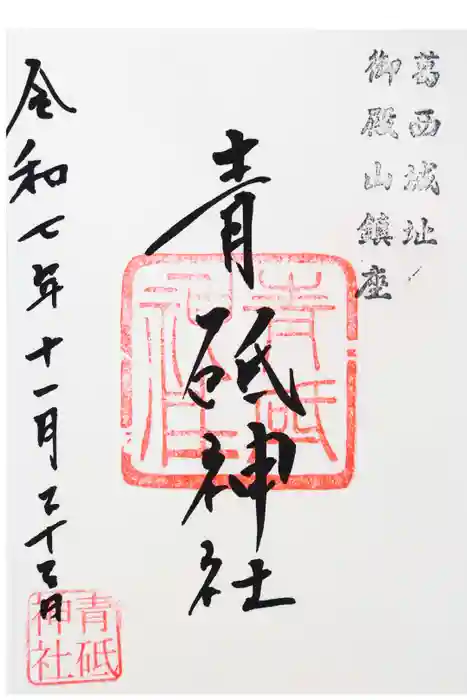 葛西城址
御殿山鎮座
青砥神社
青砥神社
令和七年十一月二十二日
青砥神社